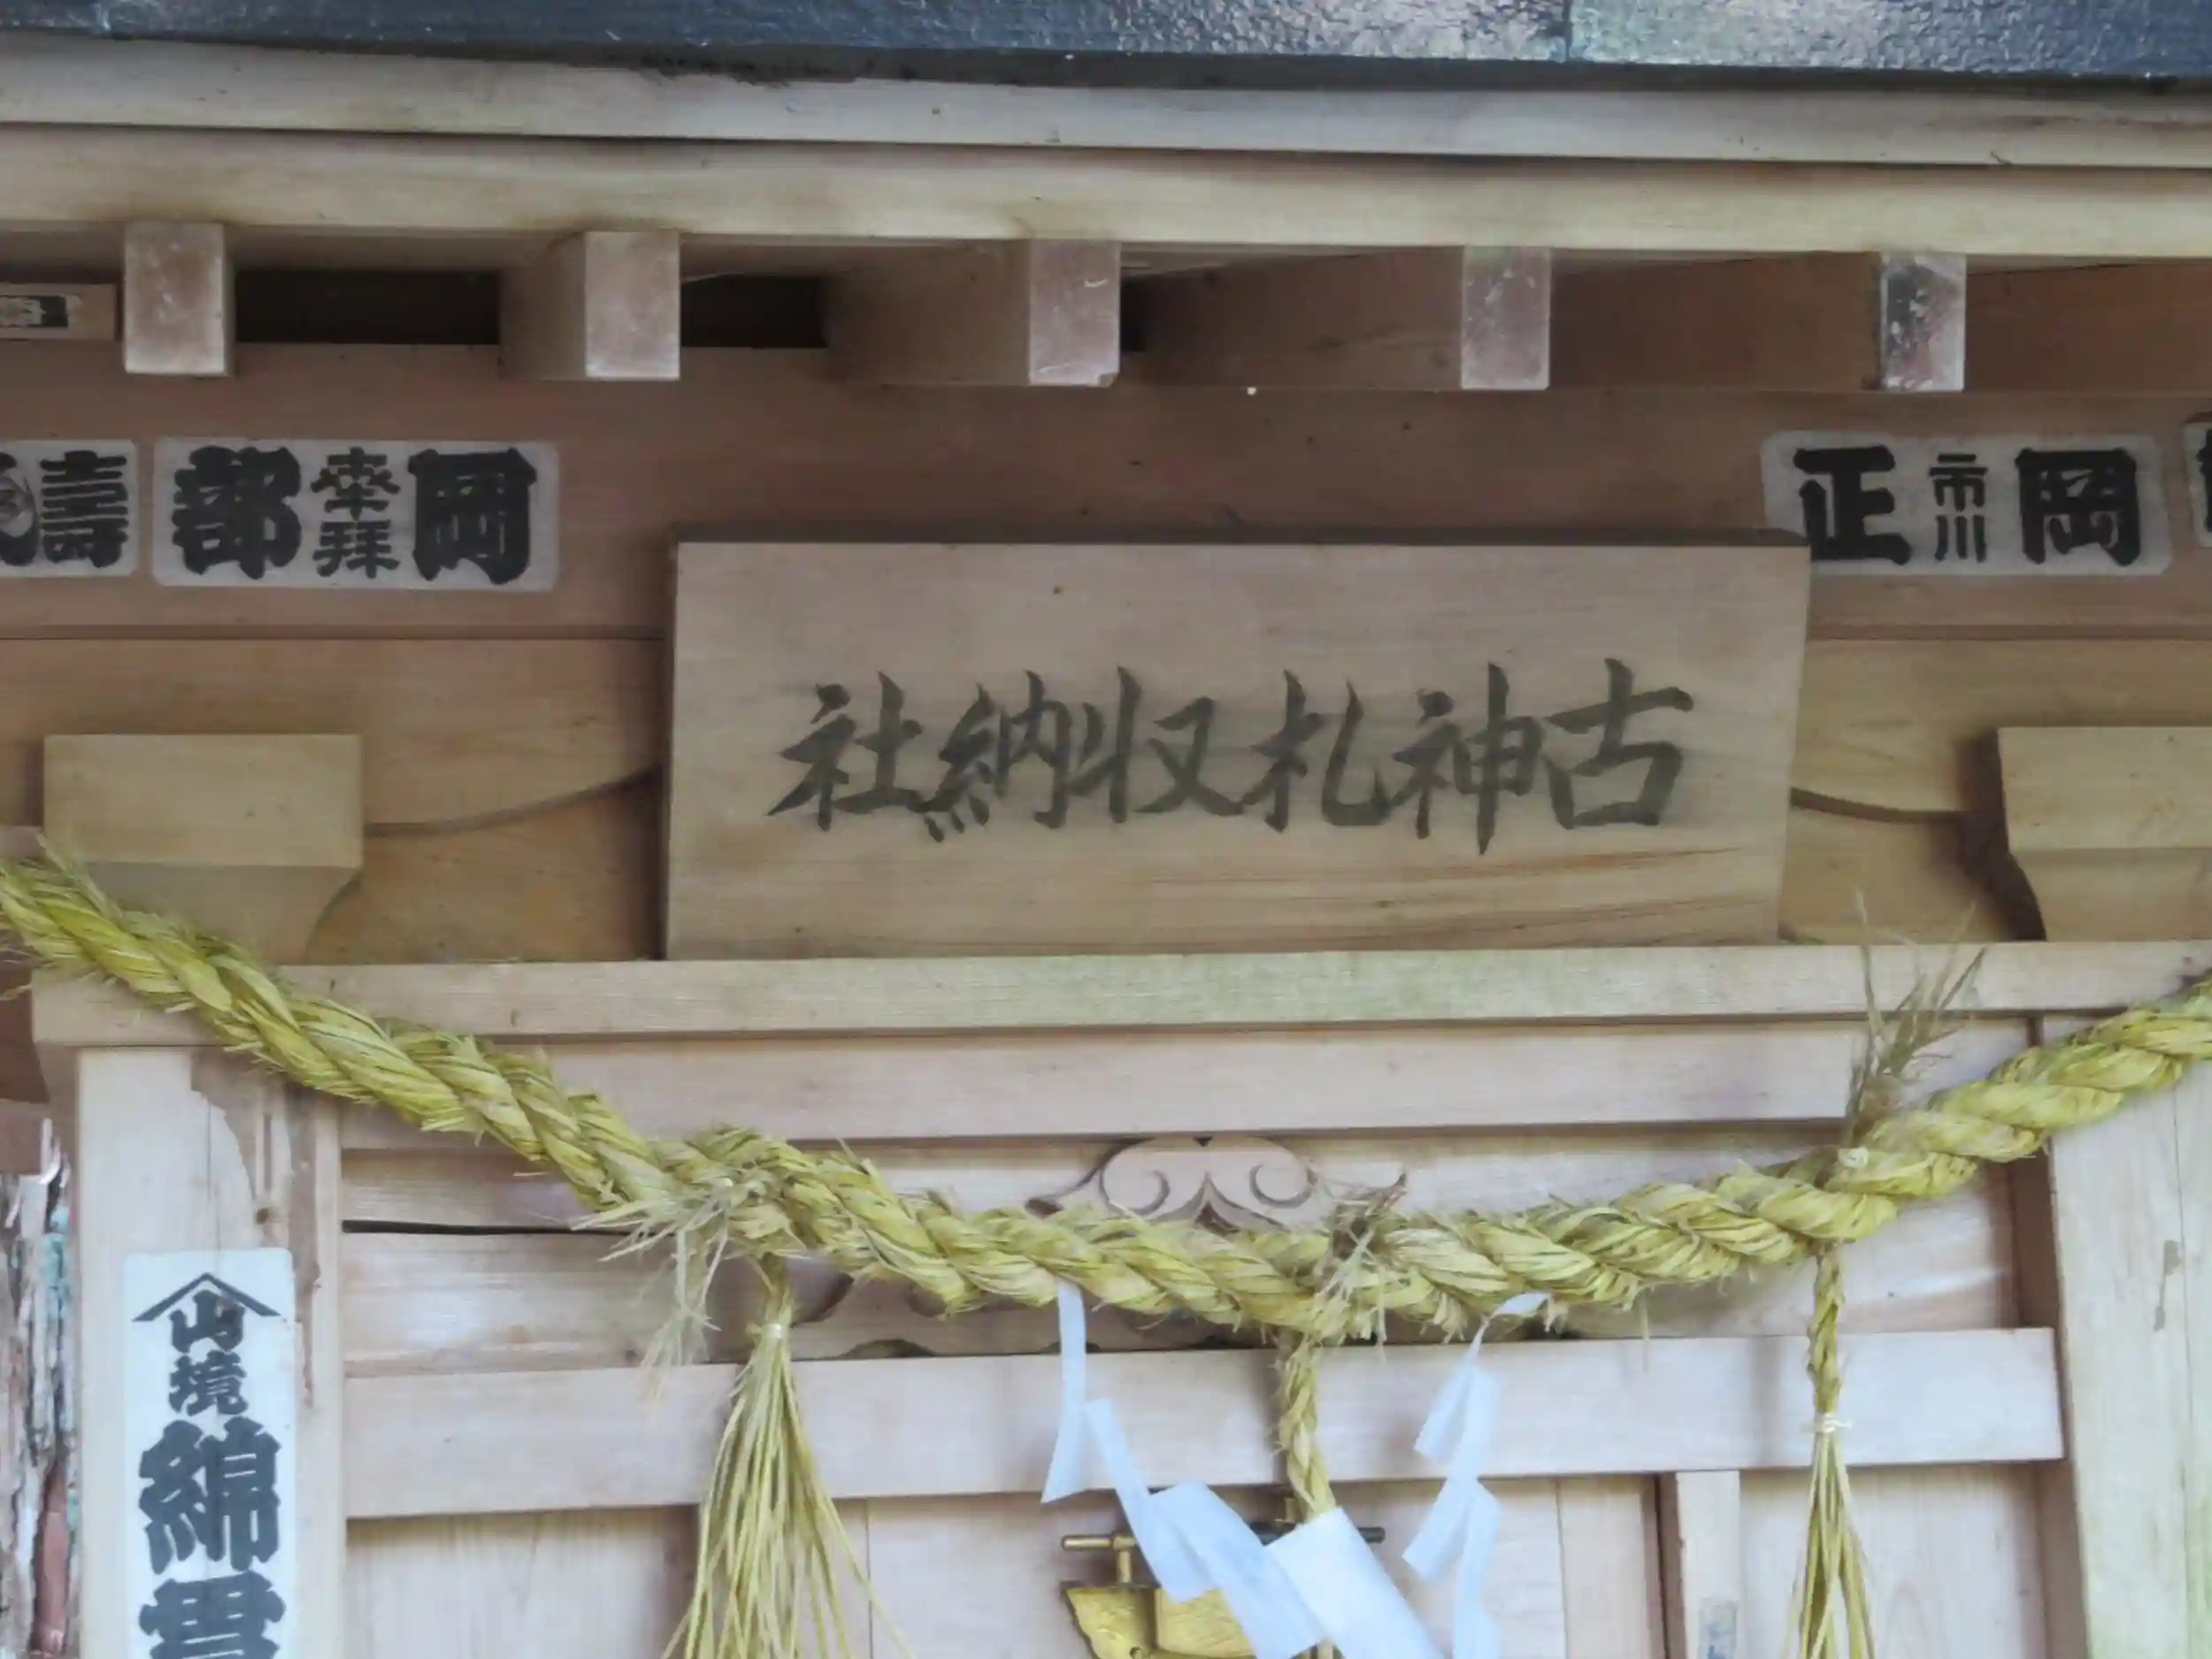 古神札収納社
岡 市川 正
岡 奉拝 都
壽
山
境
綿
貫